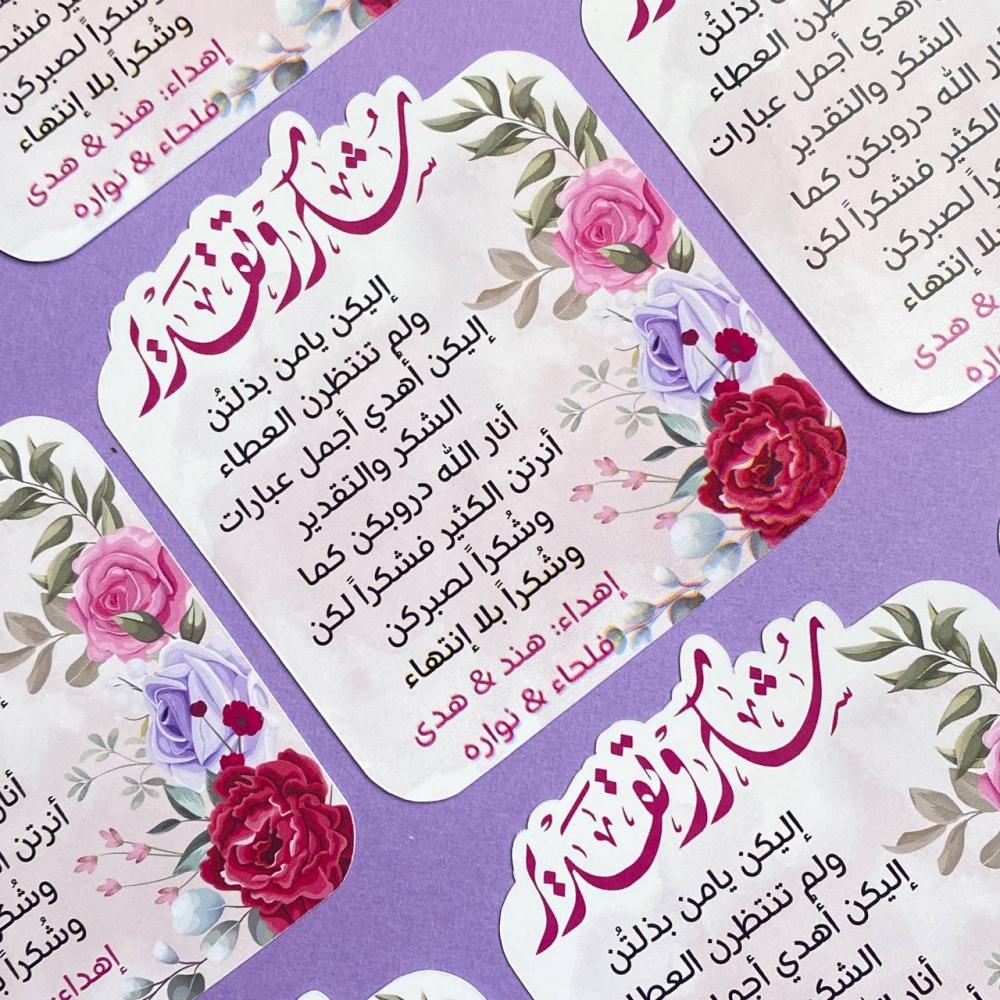 لصبركن
وشكراً بلا إنتهاء
إهداء: هند & هدى
فلحاء & نواره
بذلتُن
العطاء
أهدي أجمل عبارات
الشكر والتقدير
الله دروبكن كما
الكثير فشكراً لكن
لصبركن
بلا إنتهاء
& هدى
شكر وتقدير
إليكن يامن بذلتُن
ولم تنتظرن العطاء
إليكن أهدي أجمل عبارات
الشكر والتقدير
أنار الله دروبكن كما
أنرتن الكثير فشكراً لكن
وشُكراً لصبركن
وشُكراً بلا إنتهاء
إهداء: هند & هدى
فلحاء & نواره
أنار
أنرتن
وشُكراً
إهداء:
شكر وتقدير
إليكن يامن بذلتُن
ولم تنتظرن العطاء
إليكن أهدي أجمل
الشكر
أنار